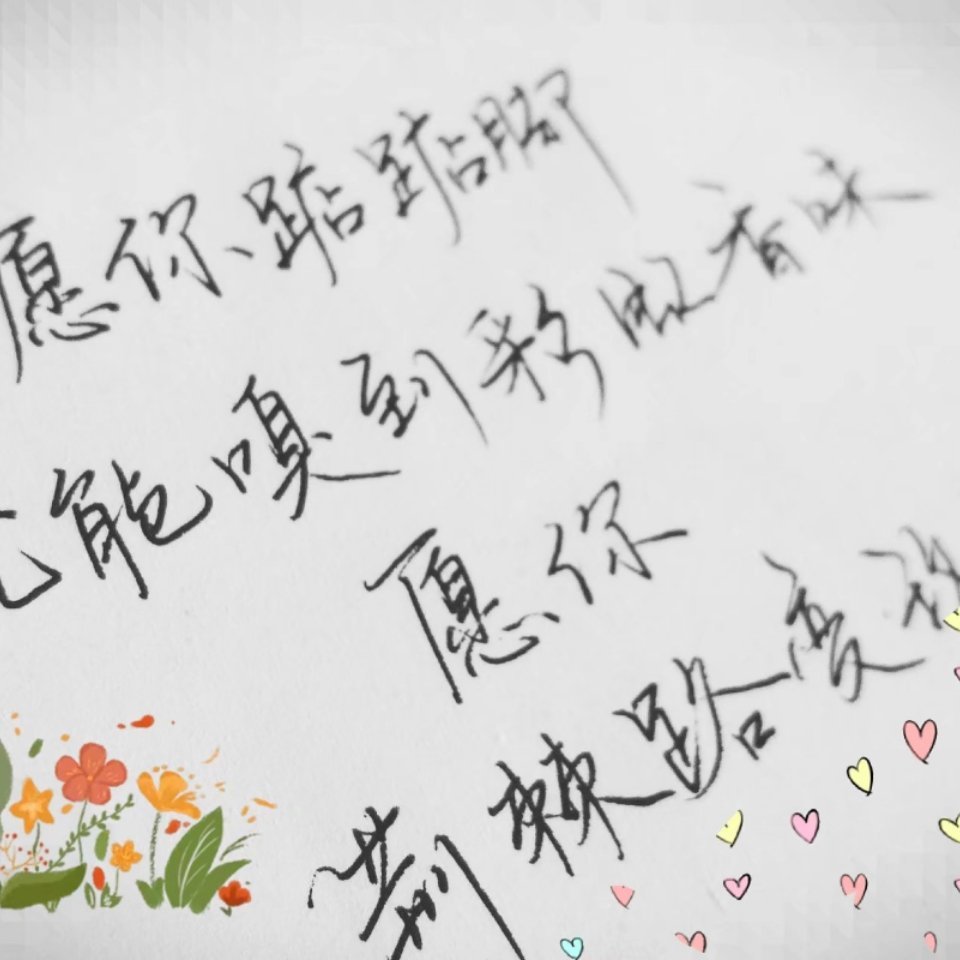 愿你踮踮脚
能嗅到彩虹香味
愿你
荆棘路变